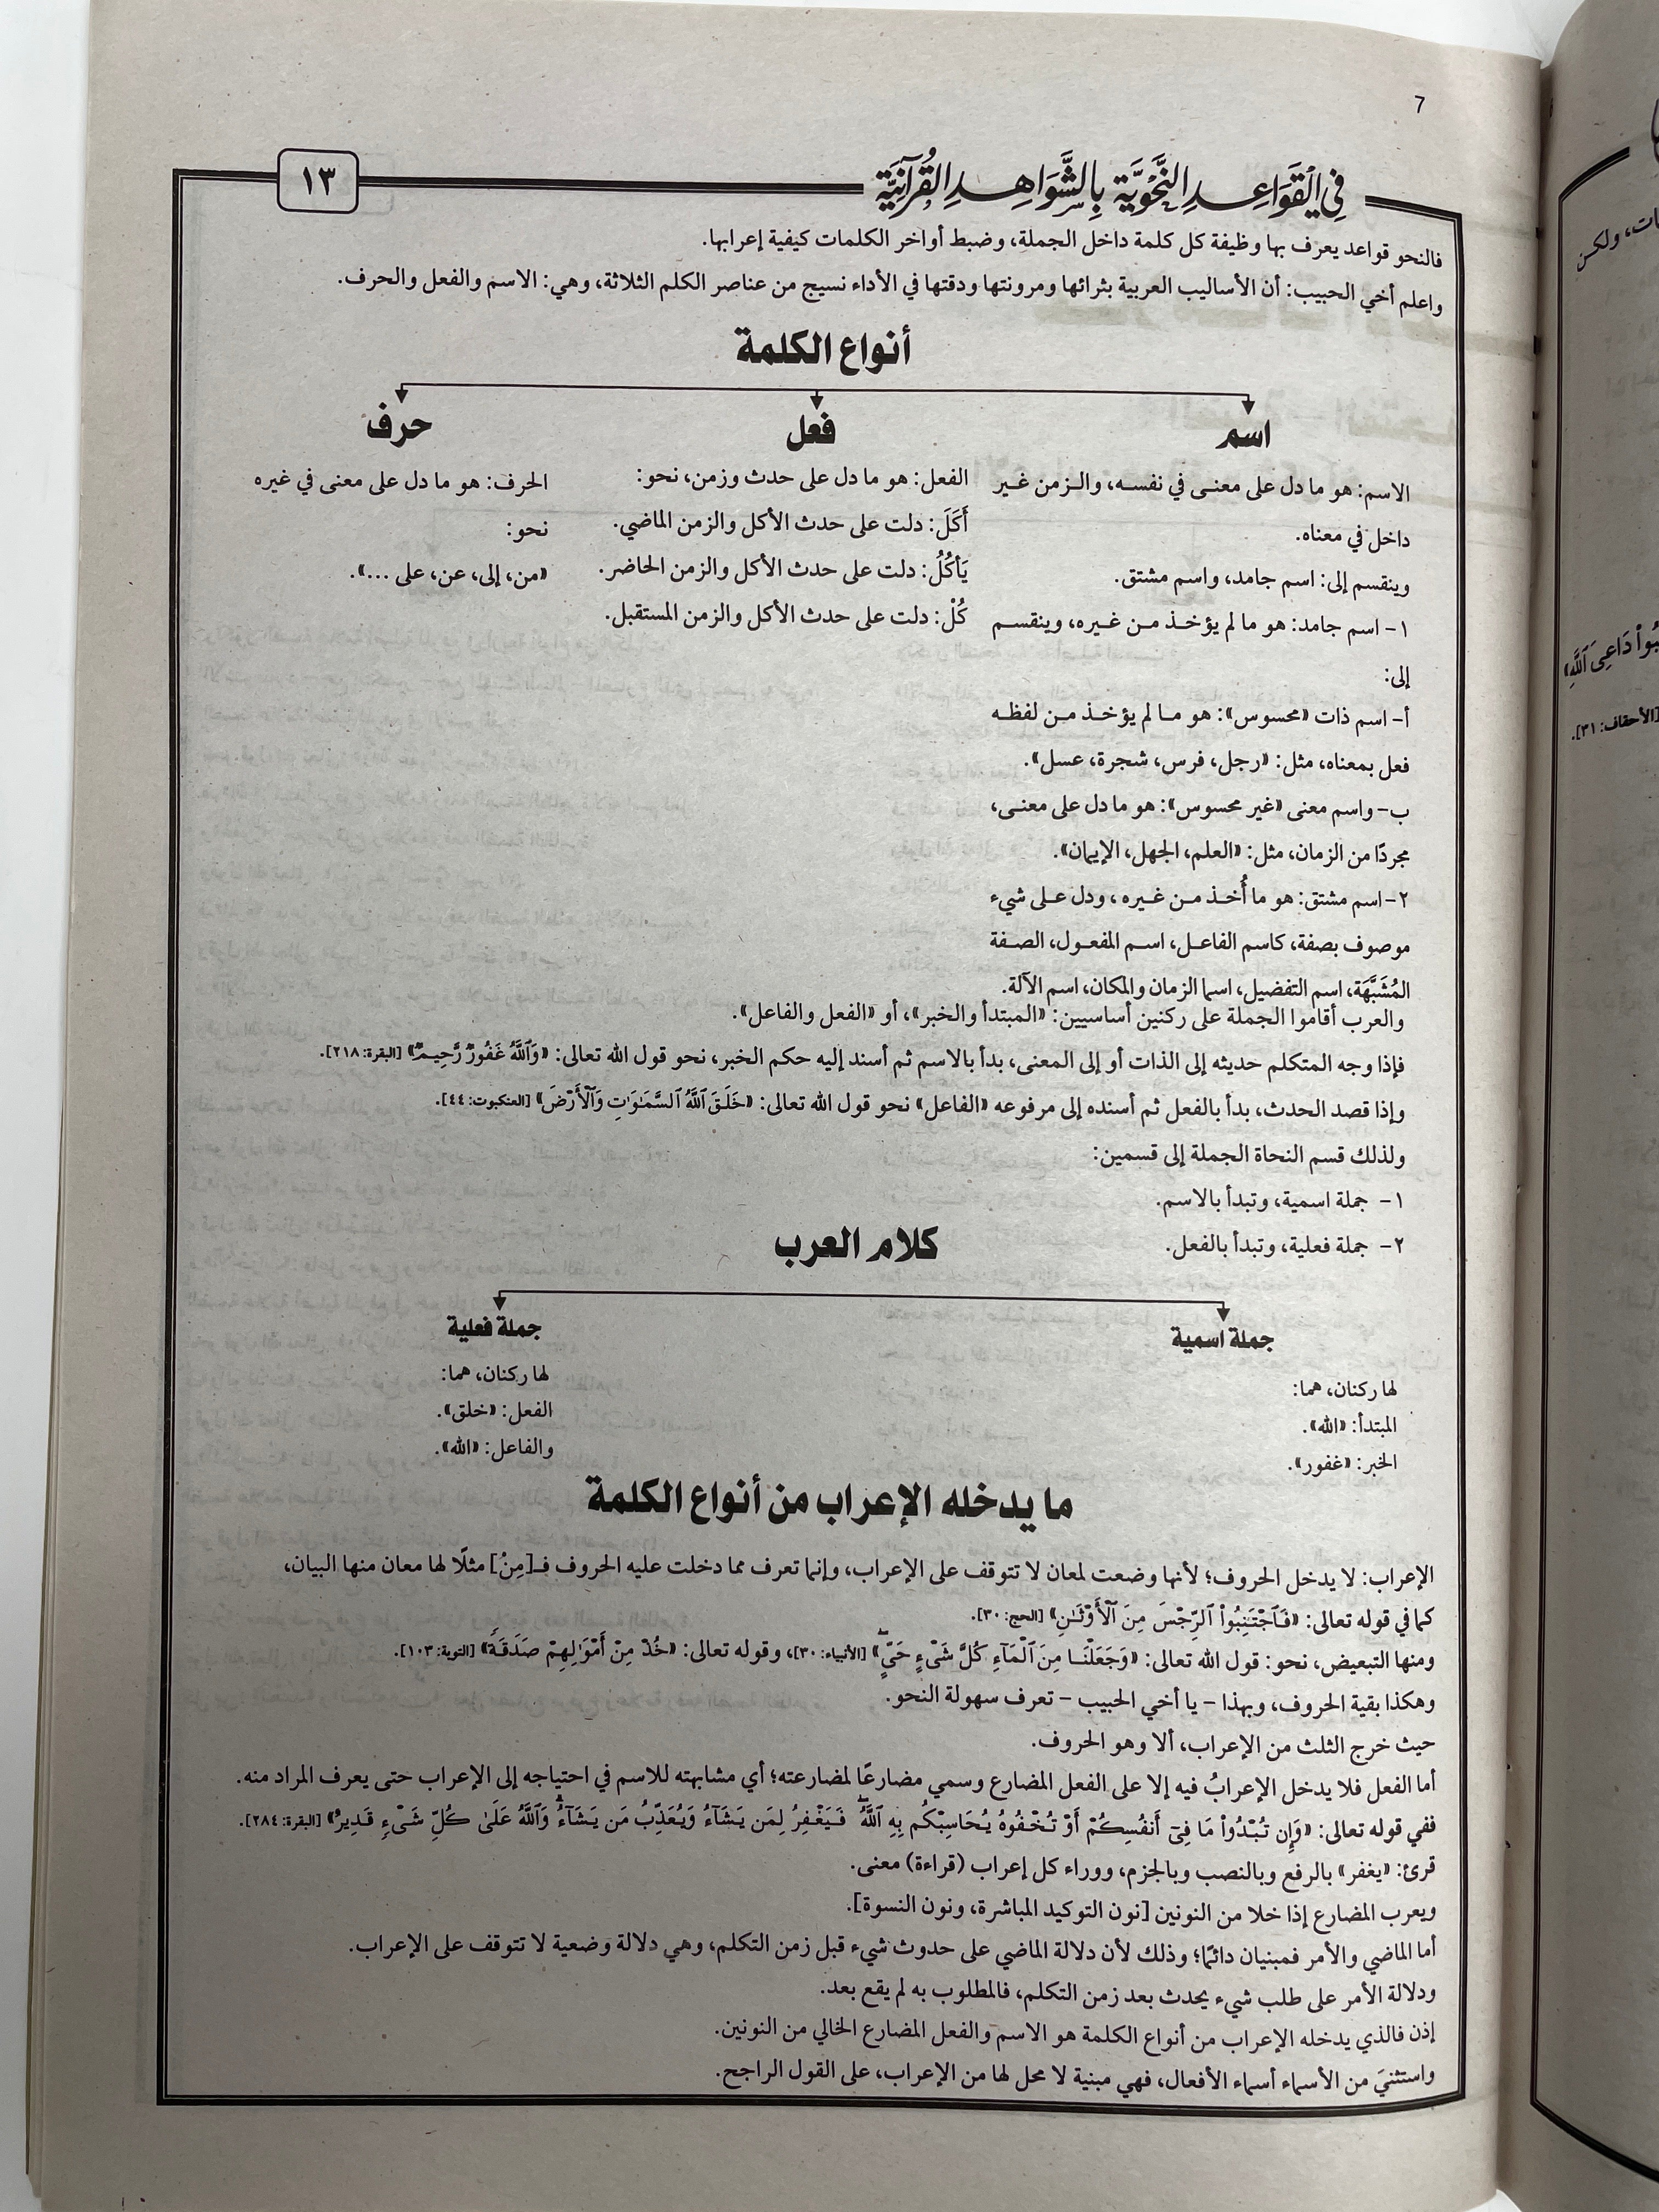 7
في القَوَاعِدِ النَّحْوِيَّة بِالشَّوَاهِدِ القُرآنِيَّة
١٣
فالنحو قواعد يعرف بها وظيفة كل كلمة داخل الجملة، وضبط أواخر الكلمات كيفية إعرابها.
واعلم أخي الحبيب: أن الأساليب العربية بثرائها ومرونتها ودقتها في الأداء نسيج من عناصر الكلم الثلاثة، وهي: الاسم والفعل والحرف.
أنواع الكلمة
اسم
الاسم: هو ما دل على معنى في نفسه، والزمن غير
داخل في معناه.
وينقسم إلى: اسم جامد، واسم مشتق.
١- اسم جامد: هو ما لم يؤخذ من غيره، وينقسم
إلى:
أ- اسم ذات «محسوس»: هو ما لم يؤخذ من لفظه
فعل بمعناه، مثل: «رجل، فرس، شجرة، عسل».
ب- واسم معنى «غير محسوس»: هو ما دل على معنى،
مجردًا من الزمان، مثل: «العلم، الجهل، الإيمان».
٢- اسم مشتق: هو ما أُخذ من غيره، ودل على شيء
موصوف بصفة، كاسم الفاعل، اسم المفعول، الصفة
المُشَبَّهَة، اسم التفضيل، اسما الزمان والمكان، اسم الآلة.
فعل
الفعل: هو ما دل على حدث وزمن، نحو:
أَكَلَ: دلت على حدث الأكل والزمن الماضي.
يَأكُلُ: دلت على حدث الأكل والزمن الحاضر.
كُلْ: دلت على حدث الأكل والزمن المستقبل.
حرف
الحرف: هو ما دل على معنى في غيره
نحو:
«من، إلى، عن، على ...».
والعرب أقاموا الجملة على ركنين أساسيين: «المبتدأ والخبر»، أو «الفعل والفاعل».
فإذا وجه المتكلم حديثه إلى الذات أو إلى المعنى، بدأ بالاسم ثم أسند إليه حكم الخبر، نحو قول الله تعالى: «وَٱللَّهُ غَفُورٌ رَّحِيمٌ» [البقرة: ٢١٨].
وإذا قصد الحدث، بدأ بالفعل ثم أسنده إلى مرفوعه «الفاعل» نحو قول الله تعالى: «خَلَقَ ٱللَّهُ ٱلسَّمَٰوَٰتِ وَٱلْأَرْضَ» [العنكبوت: ٤٤].
ولذلك قسم النحاة الجملة إلى قسمين:
١- جملة اسمية، وتبدأ بالاسم.
٢- جملة فعلية، وتبدأ بالفعل.
كلام العرب
جملة اسمية
لها ركنان، هما:
المبتدأ: «الله».
الخبر: «غفور».
جملة فعلية
لها ركنان، هما:
الفعل: «خلق».
والفاعل: «الله».
ما يدخله الإعراب من أنواع الكلمة
الإعراب: لا يدخل الحروف؛ لأنها وضعت لمعان لا تتوقف على الإعراب، وإنما تعرف مما دخلت عليه الحروف فـ[مِنْ] مثلًا لها معان منها البيان،
كما في قوله تعالى: «فَٱجْتَنِبُوا۟ ٱلرِّجْسَ مِنَ ٱلْأَوْثَٰنِ» [الحج: ٣٠].
ومنها التبعيض، نحو: قول الله تعالى: «وَجَعَلْنَا مِنَ ٱلْمَآءِ كُلَّ شَىْءٍ حَىٍّ» [الأنبياء: ٣٠]، وقوله تعالى: «خُذْ مِنْ أَمْوَٰلِهِمْ صَدَقَةً» [التوبة: ١٠٣].
وهكذا بقية الحروف، وبهذا - يا أخي الحبيب - تعرف سهولة النحو.
حيث خرج الثلث من الإعراب، ألا وهو الحروف.
أما الفعل فلا يدخل الإعرابُ فيه إلا على الفعل المضارع وسمي مضارعًا لمضارعته؛ أي مشابهته للاسم في احتياجه إلى الإعراب حتى يعرف المراد منه.
ففي قوله تعالى: «وَإِن تُبْدُوا۟ مَا فِىٓ أَنفُسِكُمْ أَوْ تُخْفُوهُ يُحَاسِبْكُم بِهِ ٱللَّهُ ۖ فَيَغْفِرُ لِمَن يَشَآءُ وَيُعَذِّبُ مَن يَشَآءُ ۗ وَٱللَّهُ عَلَىٰ كُلِّ شَىْءٍ قَدِيرٌ» [البقرة: ٢٨٤].
قرئ: «يغفر» بالرفع وبالنصب وبالجزم، ووراء كل إعراب (قراءة) معنى.
ويعرب المضارع إذا خلا من النونين [نون التوكيد المباشرة، ونون النسوة].
أما الماضي والأمر فمبنيان دائمًا؛ وذلك لأن دلالة الماضي على حدوث شيء قبل زمن التكلم، وهي دلالة وضعية لا تتوقف على الإعراب.
ودلالة الأمر على طلب شيء يحدث بعد زمن التكلم، فالمطلوب به لم يقع بعد.
إذن فالذي يدخله الإعراب من أنواع الكلمة هو الاسم والفعل المضارع الخالي من النونين.
واستثنيَ من الأسماء أسماء الأفعال، فهي مبنية لا محل لها من الإعراب، على القول الراجح.
ولكن
دَاعِىَ ٱللَّهِ»
[الأحقاف: ٣١].